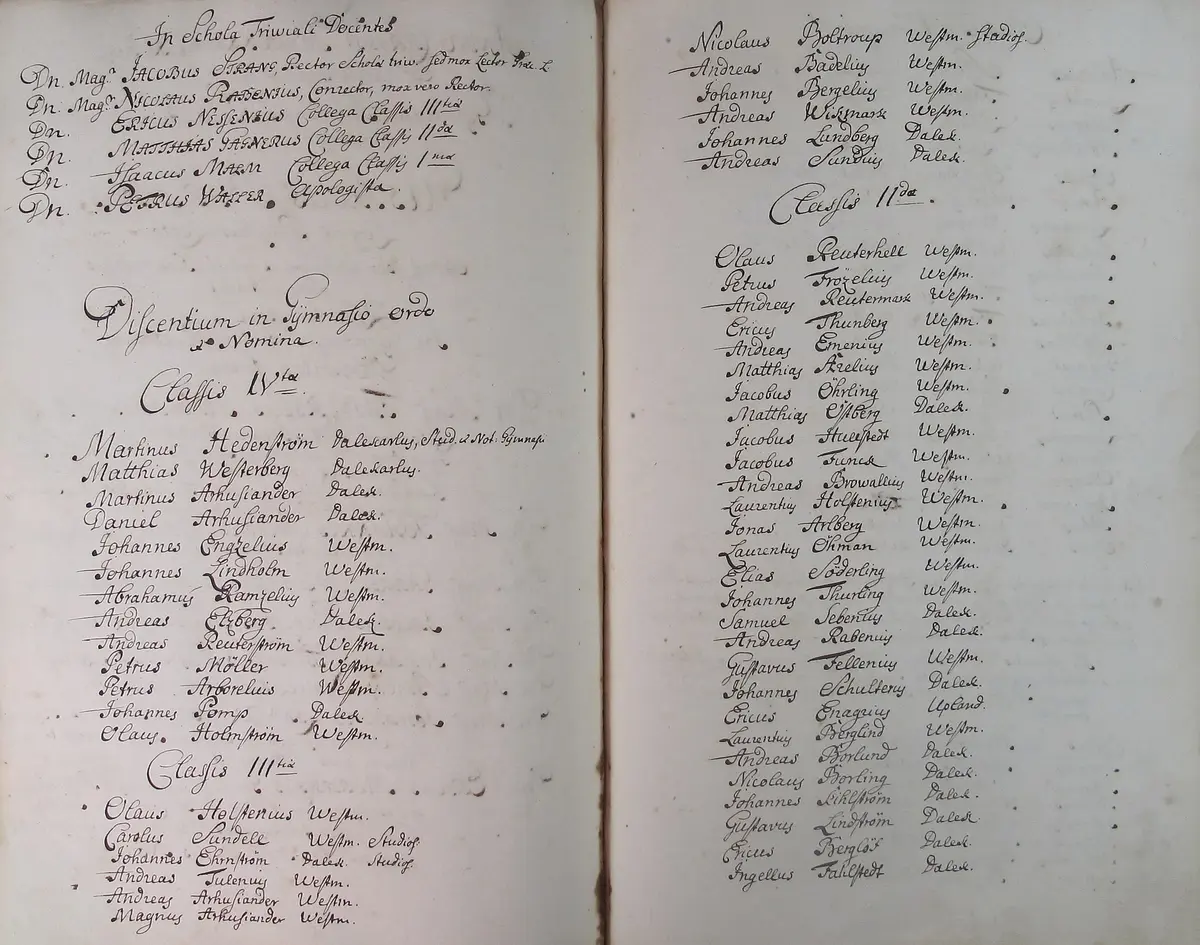 In Schola Triwiali Docentes
Dn. Mag.r JACOBUS STRANG, Rector Scholæ triw. sed mox Lector
Dn. Mag.r NICOLAUS RABENIUS, Conrector, mox vero Rector.
Dn. ERICUS NESSENIUS Collega Classis IIItiæ
Dn. MATTHIAS GAGNERUS Collega Classis IIdæ
Dn. Isaacus MALM Collega Classis 1mæ
Dn. PETRUS WALLER Apologista.
Discentium in Gÿmnasio ordo
& Nomina.
Classis IVtæ.
Martinus Hedenström Dalekarlus, Stud. & Not. Gÿmnasii
Matthias Westerberg Dalekarlus.
Martinus Arhusiander Dalek.
Daniel Arhusiander Dalek.
Johannes Engzelius Westm.
Johannes Lindholm Westm.
Abrahamus Ramzelius Westm.
Andreas Elzberg Dalek.
Andreas Reuterström Westm.
Petrus Möller Westm.
Petrus Arborelius Westm.
Johannes Pomp Dalek.
Olaus Holmström Westm.
Classis IIItiæ
Olaus Holstenius Westm.
Carolus Sundell Westm. Studios.
Johannes Ehrnström Dalek. Studios.
Andreas Tulenius Westm.
Andreas Arhusiander Westm.
Magnus Arhusiander Westm.
Nicolaus Boltroup Westm. Studios.
Andreas Badelius Westm.
Johannes Bergelius Westm.
Andreas Wikmark Westm.
Johannes Lundberg Dalek.
Andreas Sundius Dalek.
Classis IIdæ.
Olaus Reuterhell Westm.
Petrus Frözelius Westm.
Andreas Reutermark Westm.
Ericus Thunberg Westm.
Andreas Emenius Westm.
Matthias Arelius Westm.
Jacobus Öhrling Westm.
Matthias Ostberg Dalek.
Jacobus Hullstedt Westm.
Jacobus Funck Westm.
Andreas Browallius Westm.
Laurentius Holstenius Westm.
Jonas Arlberg Westm.
Laurentius Öhman Westm.
Elias Söderling Westm.
Johannes Thurling Westm.
Samuel Sebenius Dalek.
Andreas Rabenius Dalek.
Gustavus Fellenius Westm.
Johannes Schultenis Dalek.
Ericus Enagrius Upland.
Laurentius Berglind Westm.
Andreas Borlund Dalek.
Nicolaus Borling Dalek.
Johannes Kihlström Dalek.
Gustavus Lindström Dalek.
Ericus Berglöf Dalek.
Ingellus Fahlstedt Dalek.